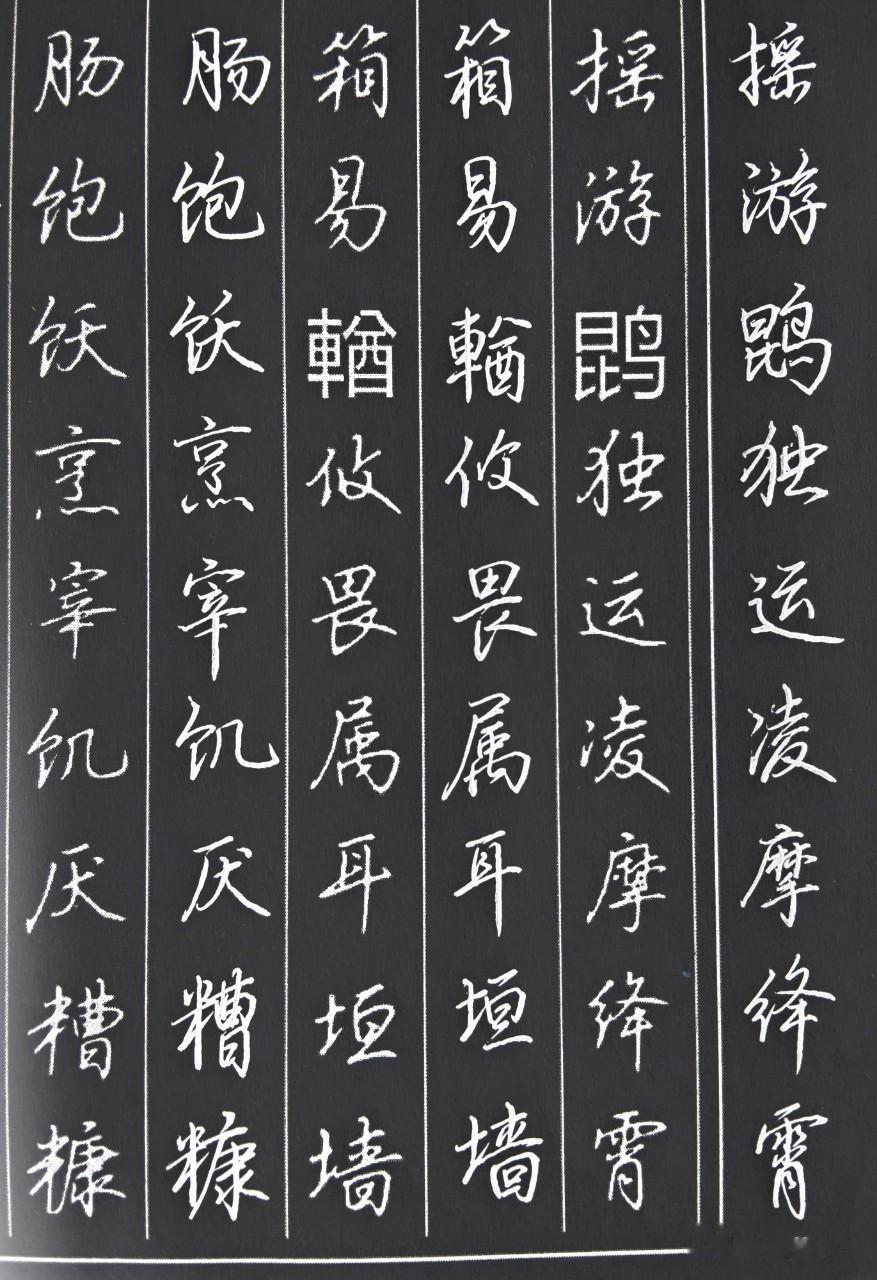 摇游鹍独运凌摩绛霄
摇游鹍独运凌摩绛霄
箱易輶攸畏属耳垣墙
箱易輶攸畏属耳垣墙
肠饱饫烹宰饥厌糟糠
肠饱饫烹宰饥厌糟糠